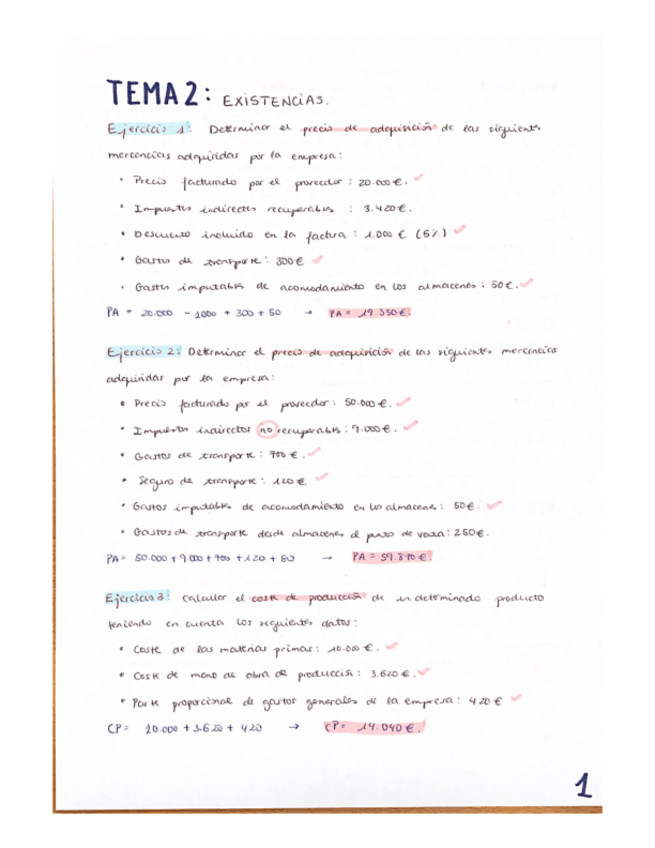 TEMA 2: EXISTENCIAS.
Ejercicio 1: Determinar el precio de adquisición de las siguientes
mercancías adquiridas por la empresa:
• Precio facturado por el proveedor: 20.000€.
• Impuestos indirectos recuperables : 3.420€.
• Descuento incluido en la factura: 1.000€ (5%)
• Gastos de transporte: 300€
• Gastos imputables de acomodamiento en los almacenes: 50€.
PA = 20.000 - 1000 + 300 + 50 → PA = 19.350€.
Ejercicio 2: Determinar el precio de adquisición de las siguientes mercancías
adquiridas por la empresa:
• Precio facturado por el proveedor: 50.000€.
• Impuestos indirectos no recuperables: 9.000€.
• Gastos de transporte: 700€.
• Seguro de transporte: 120€.
• Gastos imputables de acomodamiento en los almacenes: 50€.
• Gastos de transporte desde almacenes al punto de venta: 250€.
PA= 50.000+9000+700+120+50 → PA = 59.870€.
Ejercicio 3: Calcular el coste de producción de un determinado producto
teniendo en cuenta los siguientes datos:
• Coste de las materias primas: 10.000€.
• Coste de mano de obra de producción: 3.620€.
• Parte proporcional de gastos generales de la empresa: 420€
CP= 10.000 +3.620 + 420 → CP= 14.040€.
1